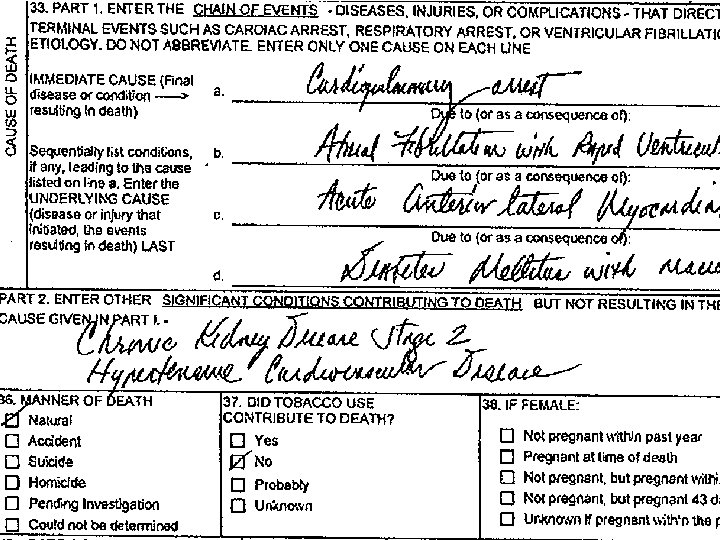 33. PART 1. ENTER THE CHAIN OF EVENTS - DISEASES, INJURIES, OR COMPLICATIONS - THAT DIRECT
TERMINAL EVENTS SUCH AS CARDIAC ARREST, RESPIRATORY ARREST, OR VENTRICULAR FIBRILLATIO
ETIOLOGY. DO NOT ABBREVIATE. ENTER ONLY ONE CAUSE ON EACH LINE
CAUSE OF DEATH
IMMEDIATE CAUSE (Final
disease or condition
resulting in death)
a. Cardiopulmonary arrest
Due to (or as a consequence of):
Sequentially list conditions,
if any, leading to the cause
listed on line a. Enter the
UNDERLYING CAUSE
(disease or injury that
initiated, the events
resulting in death) LAST
b. Atrial Fibrillation with Rapid Ventricul
Due to (or as a consequence of):
c. Acute Anterior lateral Myocardia
Due to (or as a consequence of):
d. Diabetes Mellitus with
PART 2. ENTER OTHER SIGNIFICANT CONDITIONS CONTRIBUTING TO DEATH BUT NOT RESULTING IN THE
CAUSE GIVEN IN PART I. -
Chronic Kidney Disease Stage 2
Hypertensive Cardiovascular Disease
36. MANNER OF DEATH
Natural
Accident
Suicide
Homicide
Pending Investigation
Could not be determined
37. DID TOBACCO USE
CONTRIBUTE TO DEATH?
Yes
No
Probably
Unknown
38. IF FEMALE:
Not pregnant within past year
Pregnant at time of death
Not pregnant, but pregnant withi
Not pregnant, but pregnant 43 d
Unknown if pregnant within the p